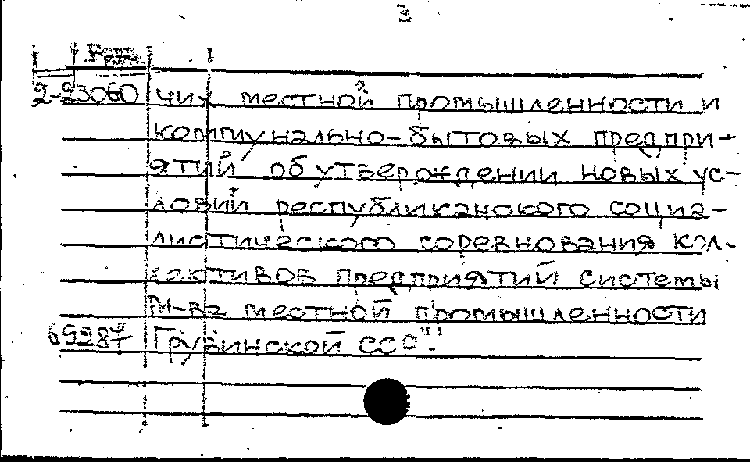 3
2-23060 чих местной промышленности и
коммунально-бытовых предпри-
ятий об утверждении новых ус-
ловий республиканского социа-
листического соревнования кол-
лективов предприятий системы
М-ва местной промышленности
69987 Грузинской ССР".